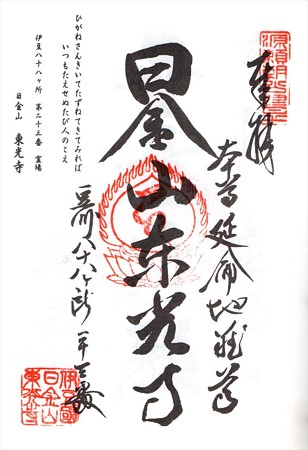 奉拝
本尊延命地蔵尊
日金山東光寺
八十八ヶ所二十三番
ひがねさんきいてたずねてきてみれば
いつもたえせぬたび人のこえ
伊豆八十八ヶ所 第二十三番 霊場
日金山 東光寺
伊豆國
日金山
東光寺